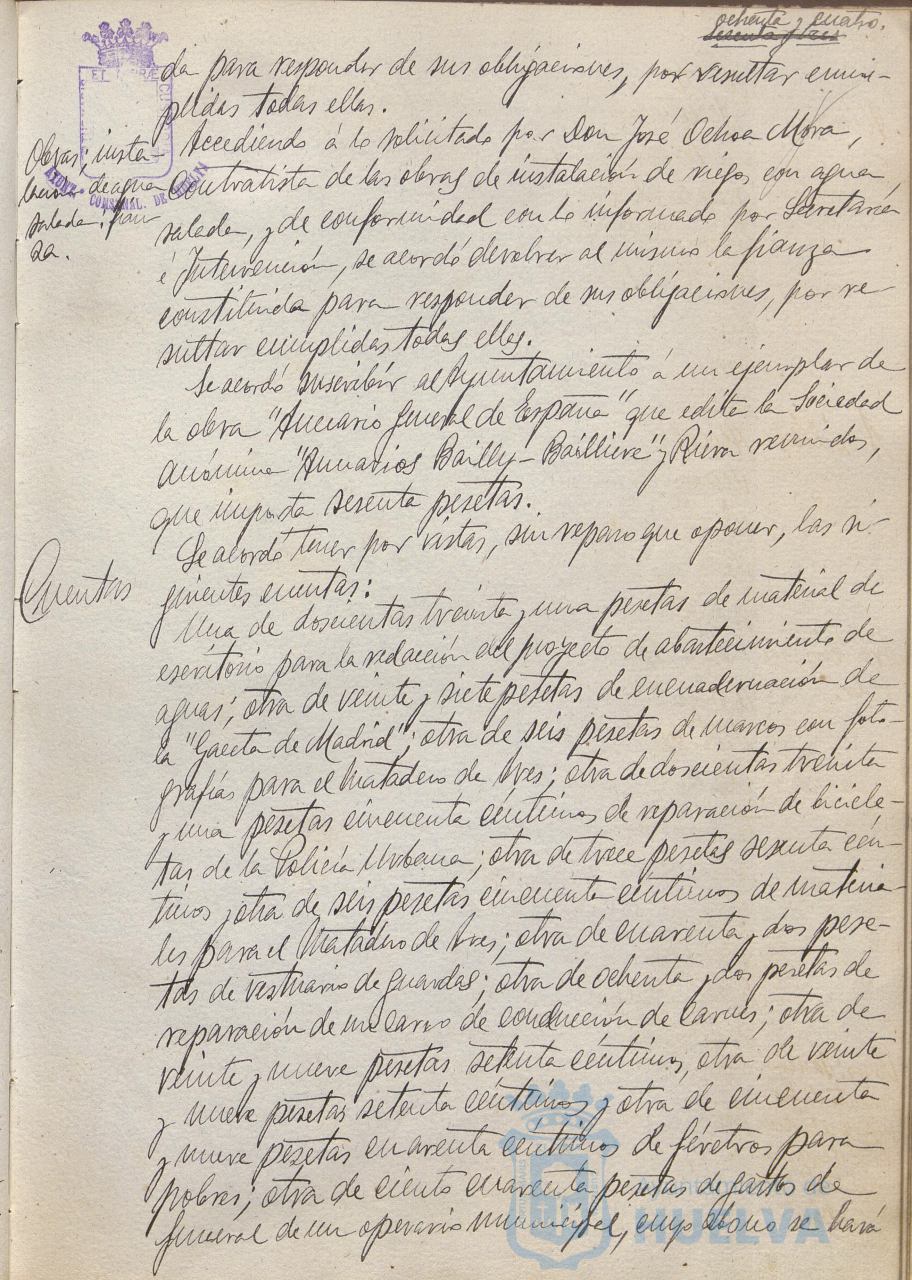 ochenta y cuatro.
da para responder de sus obligaciones, por resultar cum-
plidas todas ellas.
Obras; insta-
lacion de agua
salada. fian
za.
Accediendo á lo solicitado por Don José Ochoa Mora,
Contratista de las obras de instalación de riegos con agua
salada, y de conformidad con lo informado por Secretaría
é Intervención, se acordó devolver al mismo la fianza
constituida para responder de sus obligaciones, por re-
sultar cumplidas todas ellas.
Se acordó suscribir al Ayuntamiento á un ejemplar de
la obra "Anuario General de España" que edita la Sociedad
anónima "Anuarios Bailly-Bailliere" y Riera reunidos,
que importa sesenta pesetas.
Cuentas
Se acordó tener por vistas, sin reparo que oponer, las si-
guientes cuentas:
Una de doscientas treinta y una pesetas de material de
escritorio para la redacción del proyecto de abastecimiento de
aguas; otra de veinte y siete pesetas de encuadernación de
la "Gaceta de Madrid"; otra de seis pesetas de marcos con foto-
grafías para el Matadero de reses; otra de doscientas treinta
y una pesetas cincuenta céntimos de reparación de bicicle-
tas de la Policía Urbana; otra de trece pesetas sesenta cén-
timos y otra de seis pesetas cincuenta céntimos de materia-
les para el Matadero de reses; otra de cuarenta y dos pese-
tas de vestuario de guardas; otra de ochenta y dos pesetas de
reparación de un carro de conducción de carnes; otra de
veinte y nueve pesetas setenta céntimos, otra de veinte
y nueve pesetas setenta céntimos y otra de cincuenta
y nueve pesetas cuarenta céntimos de féretros para
pobres; otra de ciento cuarenta pesetas de gastos de
funeral de un operario municipal, cuyo abono se hará
HUELVA